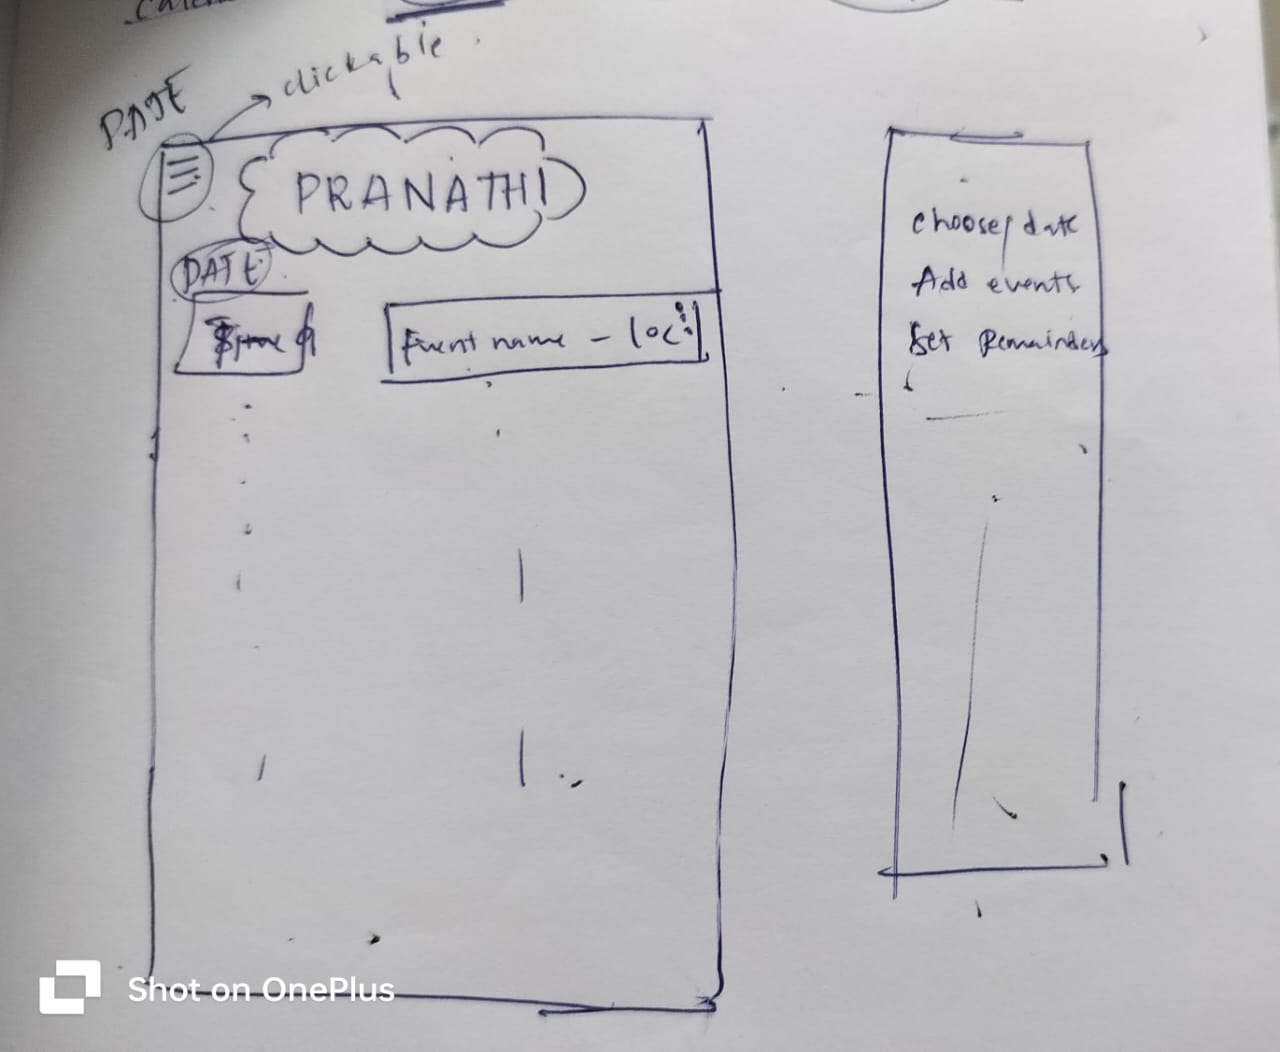 clickable
DATE
PRANATHI
DATE
Time
Event name - loc
choose date
Add events
Set Remainders
Shot on OnePlus